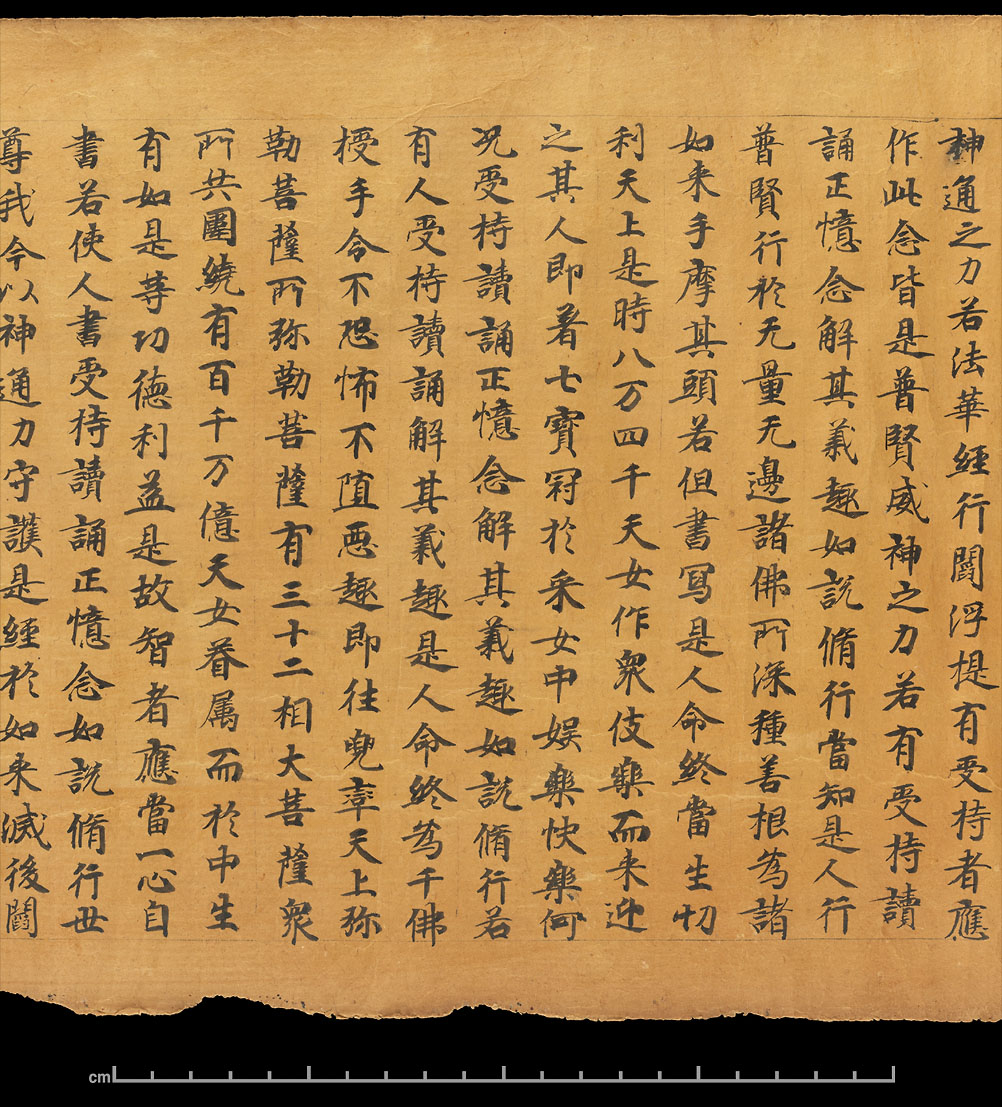 神通之力若法華經行閻浮提有受持者應
作此念皆是普賢威神之力若有受持讀
誦正憶念解其義趣如說脩行當知是人行
普賢行於无量无邊諸佛所深種善根為諸
如来手摩其頭若但書寫是人命終當生忉
利天上是時八万四千天女作衆伎樂而来迎
之其人即著七寶冠於采女中娱樂快樂何
况受持讀誦正憶念解其義趣如說脩行若
有人受持讀誦解其義趣是人命終為千佛
授手令不恐怖不墮惡趣即往兜率天上弥
勒菩薩所弥勒菩薩有三十二相大菩薩衆
所共圍繞有百千万億天女眷属而於中生
有如是等功德利益是故智者應當一心自
書若使人書受持讀誦正憶念如說脩行世
尊我今以神通力守護是經於如来滅後閻
cm